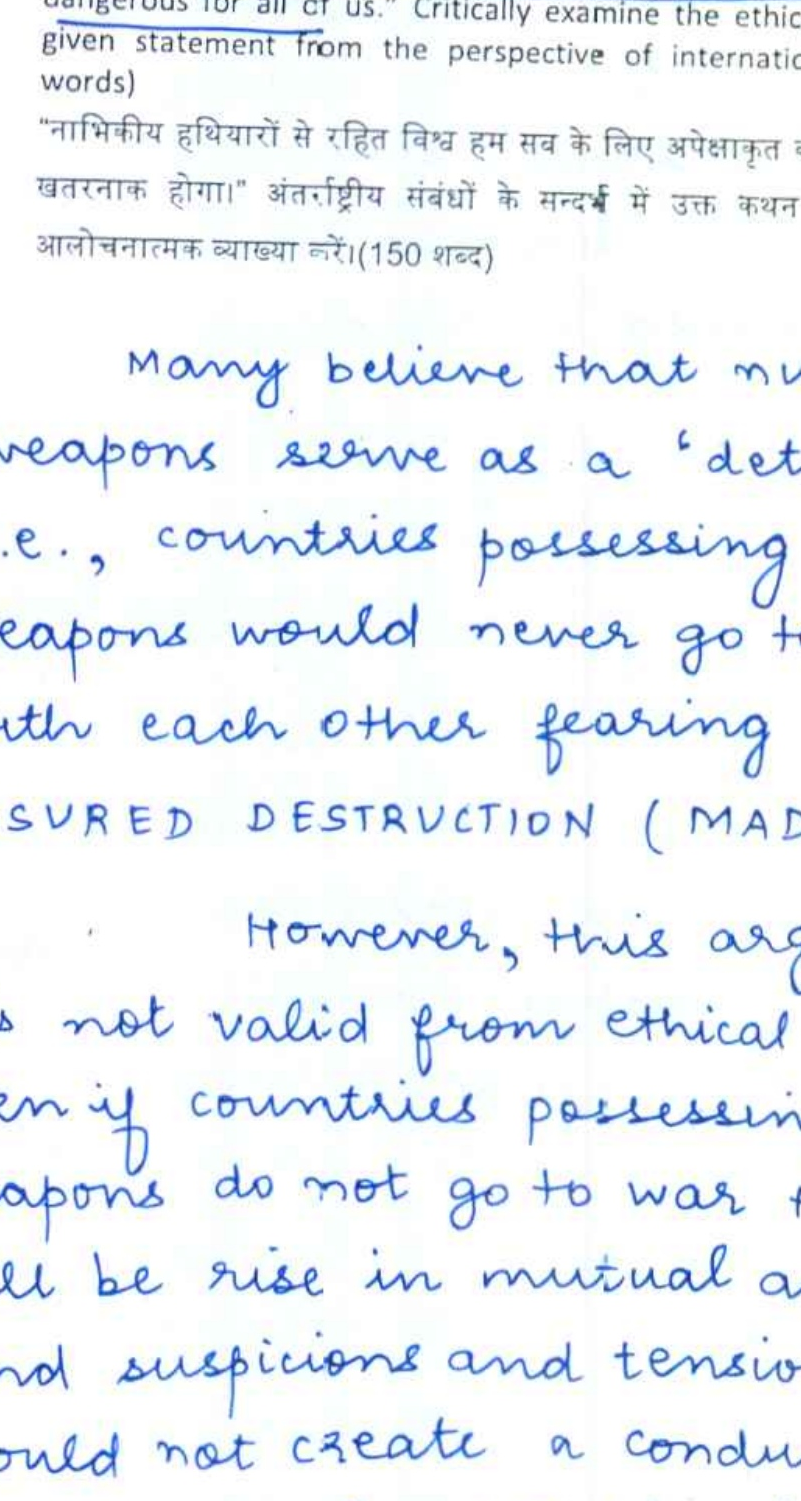 dangerous for all of us." Critically examine the ethic
given statement from the perspective of internatio
words)
"नाभिकीय हथियारों से रहित विश्व हम सव के लिए अपेक्षाकृत
खतरनाक होगा।" अंतर्राष्ट्रीय संबंधों के सन्दर्भ में उक्त कथन
आलोचनात्मक व्याख्या करें।(150 शब्द)
Many believe that nu
weapons serve as a 'det
i.e., countries possessing
eapons would never go to
ith each other fearing
SURED DESTRUCTION (MAD
However, this arg
s not valid from ethical
en if countries possessin
apons do not go to war
ll be rise in mutual a
nd suspicions and tensio
ould not create a condu